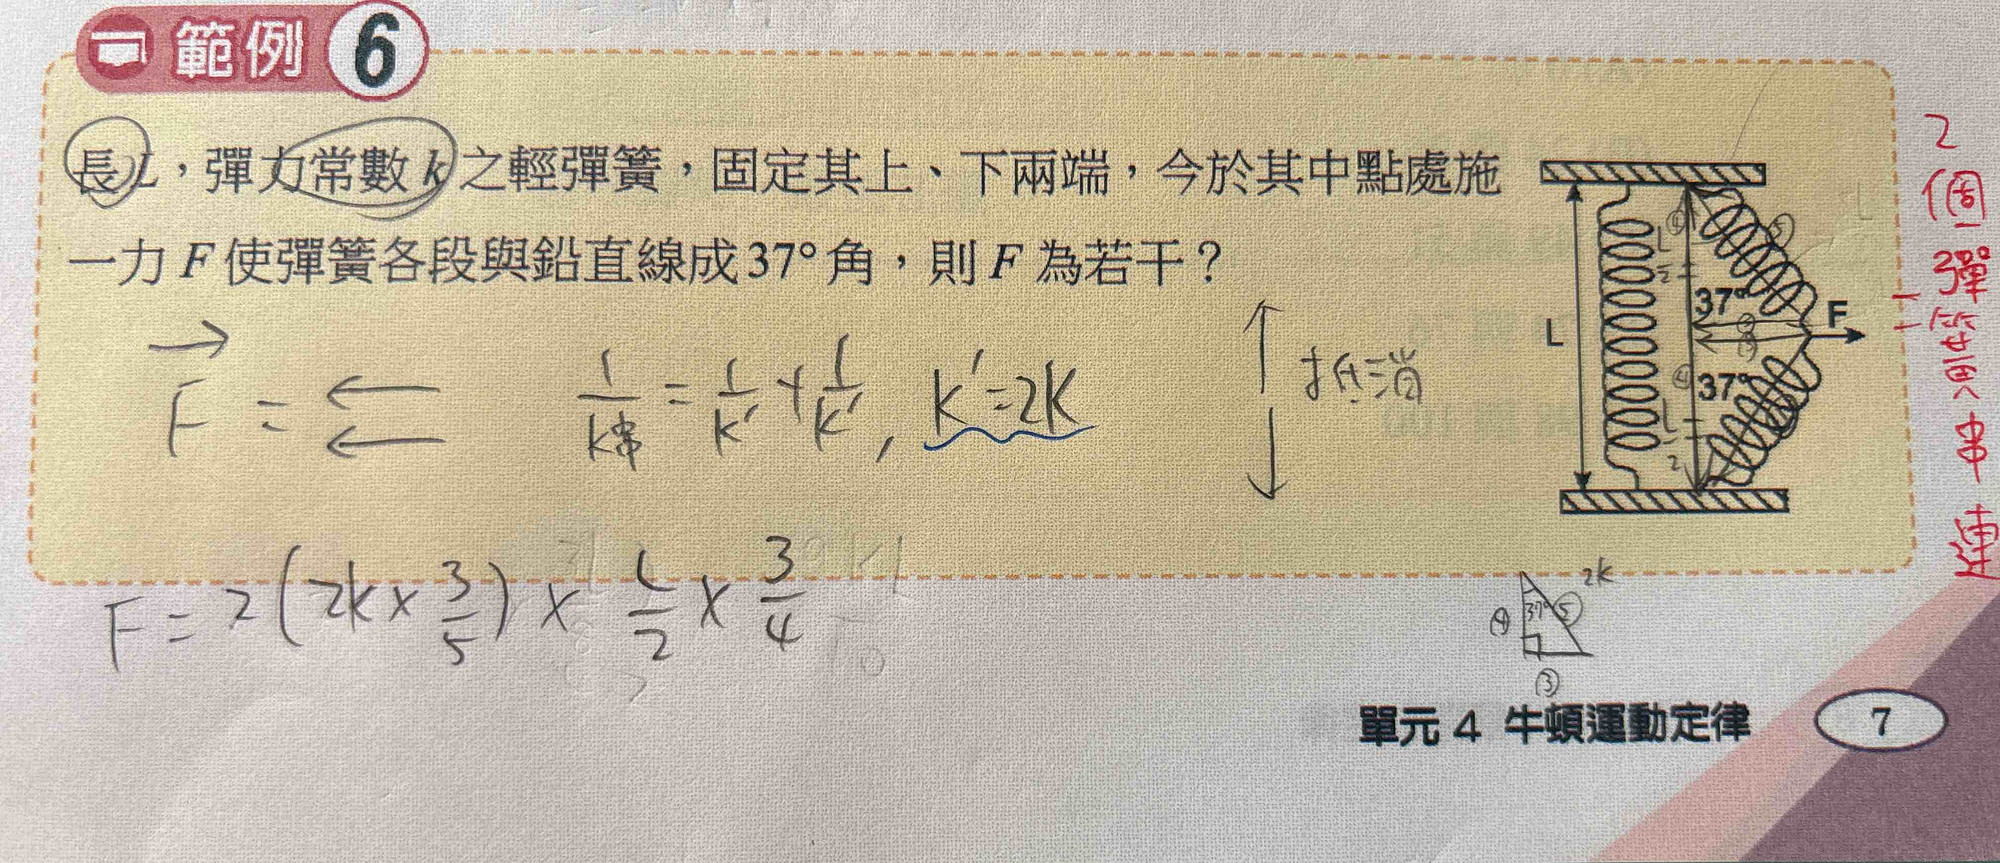 範例 6
長L，彈力常數 k 之輕彈簧，固定其上、下兩端，今於其中點處施
一力 F 使彈簧各段與鉛直線成 37° 角，則 F 為若干？
L
37°
37°
F
L/2
L/2
④
④
⑤
③
③
2個彈簧串連
F = ← ←
1/k串 = 1/k' + 1/k' , k' = 2k
抵消
F = 2 ( 2k × 3/5 ) × L/2 × 3/4
④ 37° ⑤ 2k
③
單元 4 牛頓運動定律 7